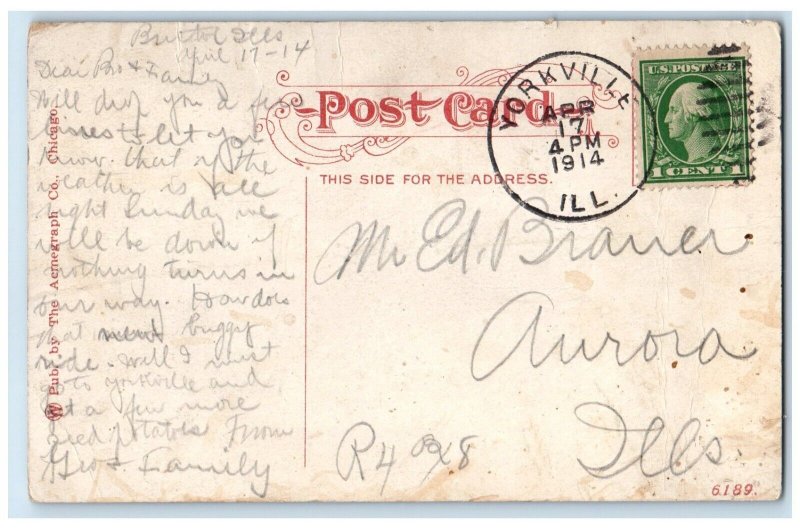 Bristol Ills
April 17-14
Dear Bro & Family
Will drop you a few
lines to let you
know that if the
weather is all
right Sunday we
will be down if
nothing turns in
our way. How does
that new buggy
ride. Well I must
go to Yorkville and
get a few more
seed potatoes From
Geo & Family
Pub. by The Acmegraph Co., Chicago
Post Card
THIS SIDE FOR THE ADDRESS.
YORKVILLE
APR
17
4 PM
1914
ILL.
U.S. POSTAGE
1 CENT 1
Mr Ed. Brauer
Aurora
Ills.
R4 Bx 8
6189.